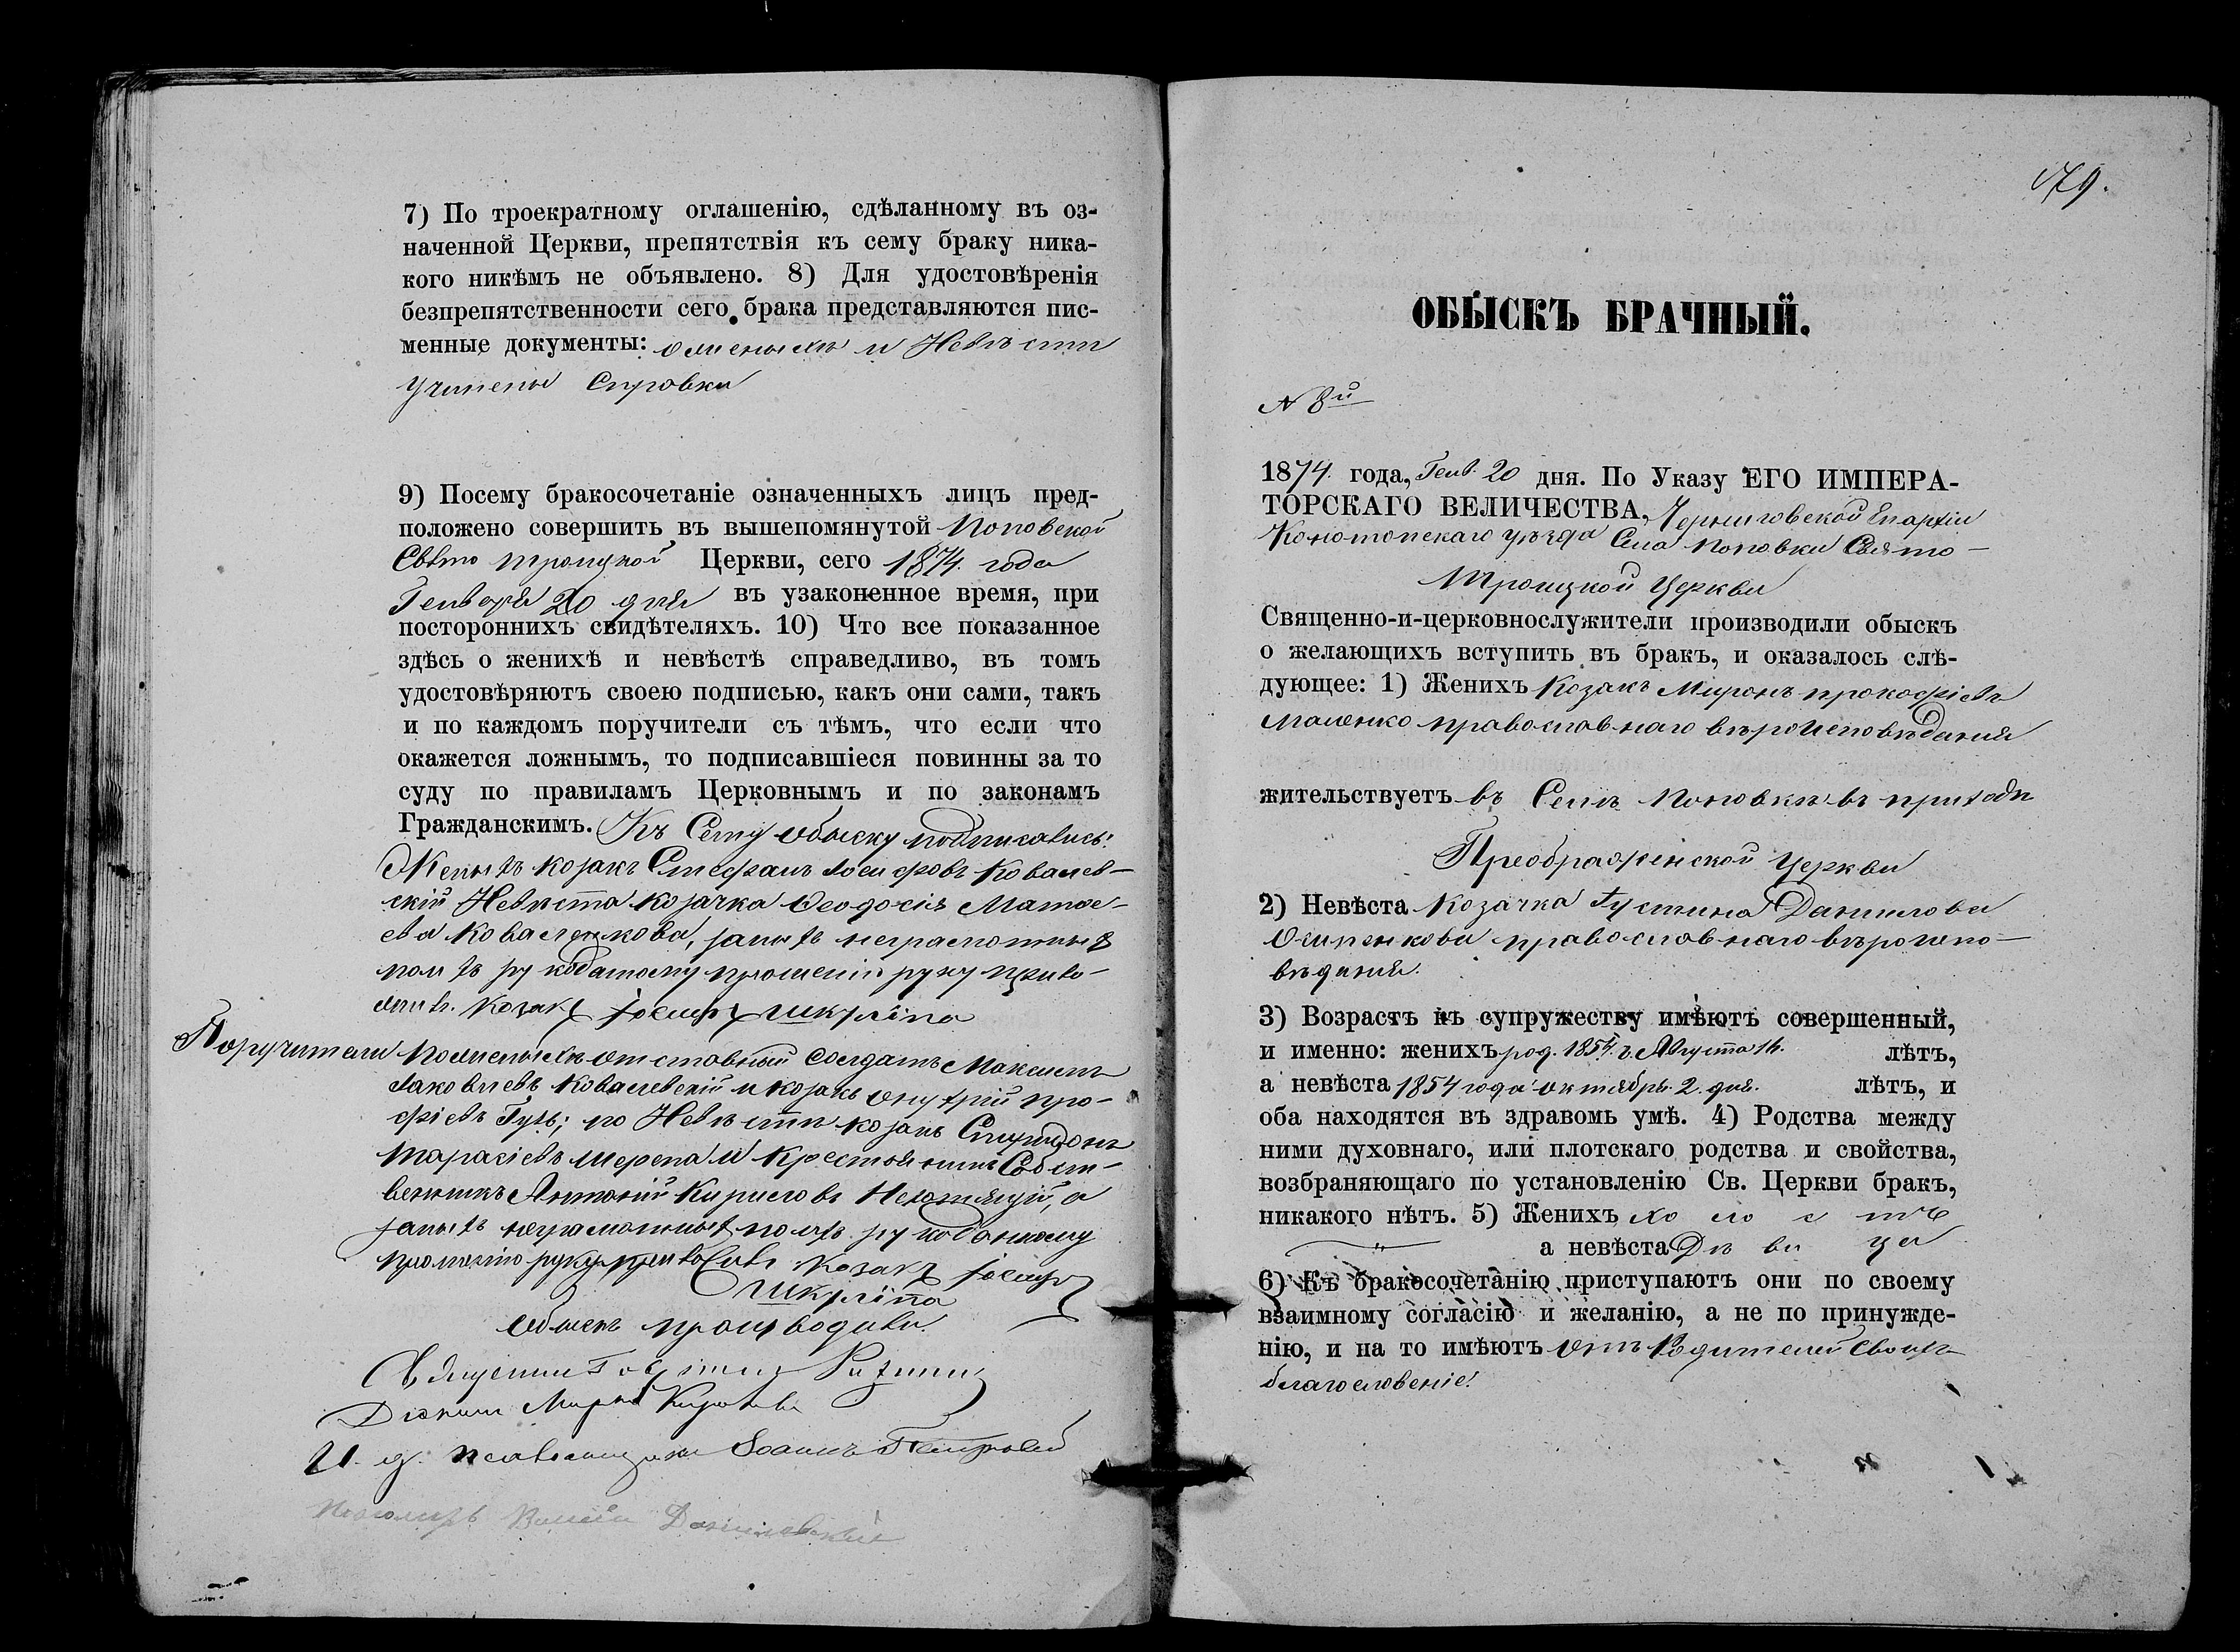 7) По троекратному оглашенію, сдѣланному въ оз-
наченной Церкви, препятствія къ сему браку ника-
кого никѣмъ не объявлено. 8) Для удостовѣренія
безпрепятственности сего брака представляются пис-
менные документы: о женихѣ и Невѣстѣ
учинены Справки
9) Посему бракосочетаніе означенныхъ лицъ пред-
положено совершить въ вышепомянутой Поповской
Свято Троицкой Церкви, сего 1874 года
Генваря 20 дня въ узаконенное время, при
постороннихъ свидѣтеляхъ. 10) Что все показанное
здѣсь о женихѣ и невѣстѣ справедливо, въ томъ
удостовѣряютъ своею подписью, какъ они сами, такъ
и по каждомъ поручители съ тѣмъ, что если что
окажется ложнымъ, то подписавшіеся повинны за то
суду по правиламъ Церковнымъ и по законамъ
Гражданскимъ. Къ Сему обыску подписались:
Женихъ козакъ Стефанъ Іосифовъ Ковалев-
скій Невѣста козачка Ѳеодосія Матѳе-
ева Коваленкова, за нихъ неграмотныхъ
по ихъ рукоданному прошенію руку прило-
жилъ. Козакъ Іосифъ Шкуліпа
Поручители по женихѣ отставный солдатъ Максимъ
Яковлевъ Ковалевскій и козакъ Онуфрій Про-
фіевъ Гузь; по Невѣстѣ козакъ Спиридонъ
Тарасіевъ Шерепа и Крестьянинъ Собст-
венникъ Антоній Кириловъ а
за нихъ неграмотныхъ по ихъ рукоданному
прошенію руку приложилъ Козакъ Іосифъ
Шкуліпа
Обыскъ производили
Священник
Діаконъ
И. д. псаломщика Іоаннъ Петровскій
179.
ОБЫСКЪ БРАЧНЫЙ.
N 8й
1874 года, Генв. 20 дня. По Указу ЕГО ИМПЕРА-
ТОРСКАГО ВЕЛИЧЕСТВА, Черниговской Епархіи
Конотопскаго уѣзда Села Поповки Свято-
Троицкой Церкви
Священно-и-церковнослужители производили обыскъ
о желающихъ вступить въ бракъ, и оказалось слѣ-
дующее: 1) Женихъ Козакъ Миронъ Прокофіевъ
Маленко православнаго вѣроисповѣданія
жительствуетъ въ Селѣ Поповкѣ въ приходѣ
Преображенской Церкви
2) Невѣста Козачка Іустина Данилова
Осипенкова православнаго вѣроиспо-
вѣданія.
3) Возрастъ къ супружеству имѣютъ совершенный,
и именно: женихъ род. 1854 г. Августа 14. лѣтъ,
а невѣста 1854 года октября 2. дня. лѣтъ, и
оба находятся въ здравомъ умѣ. 4) Родства между
ними духовнаго, или плотскаго родства и свойства,
возбраняющаго по установленію Св. Церкви бракъ,
никакого нѣтъ. 5) Женихъ холостъ
а невѣста Дѣвица
6) Къ бракосочетанію приступаютъ они по своему
взаимному согласію и желанію, а не по принужде-
нію, и на то имѣютъ отъ Родителей своихъ
благословеніе.